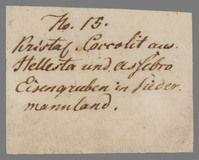 No. 15.
Kristal. Coccolit aus
Hellesta und Assebro
Eisengruben in Süder,
mannland.